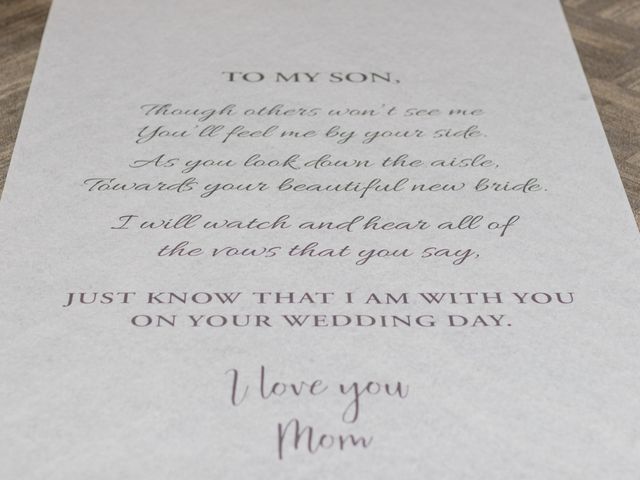 TO MY SON,
Though others won't see me
You'll feel me by your side.
As you look down the aisle,
Towards your beautiful new bride.
I will watch and hear all of
the vows that you say,
JUST KNOW THAT I AM WITH YOU
ON YOUR WEDDING DAY.
I love you
Mom